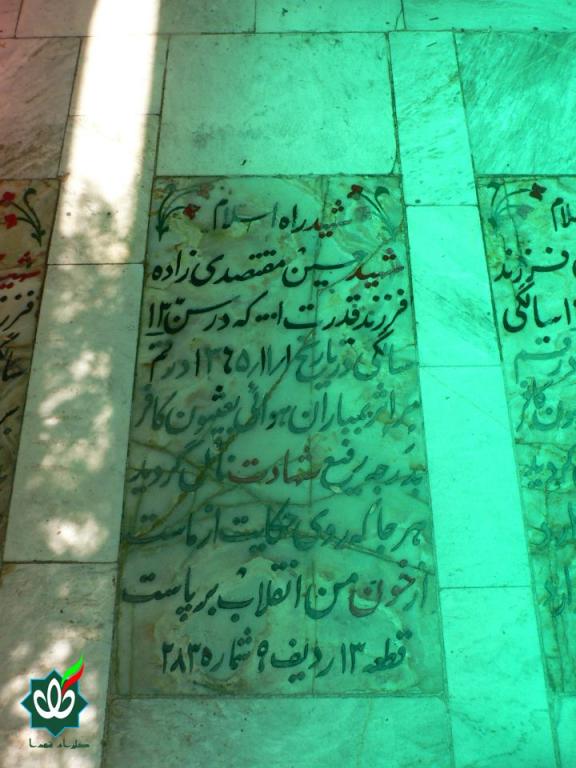 شهید راه اسلام
شهید حسین مقتصدی زاده
فرزند قدرت ا... که در سن ۱۳
سالگی در تاریخ ۱۳۶۵/۱۱/۱ در قم
بر اثر بمباران هوائی بعثیون کافر
بدرجه رفیع شهادت نائل گردید
هر جا که روی حکایت از ماست
از خون من انقلاب برپاست
قطعه ۱۳ ردیف ۹ شماره ۲۸۳
گلزار شهدا